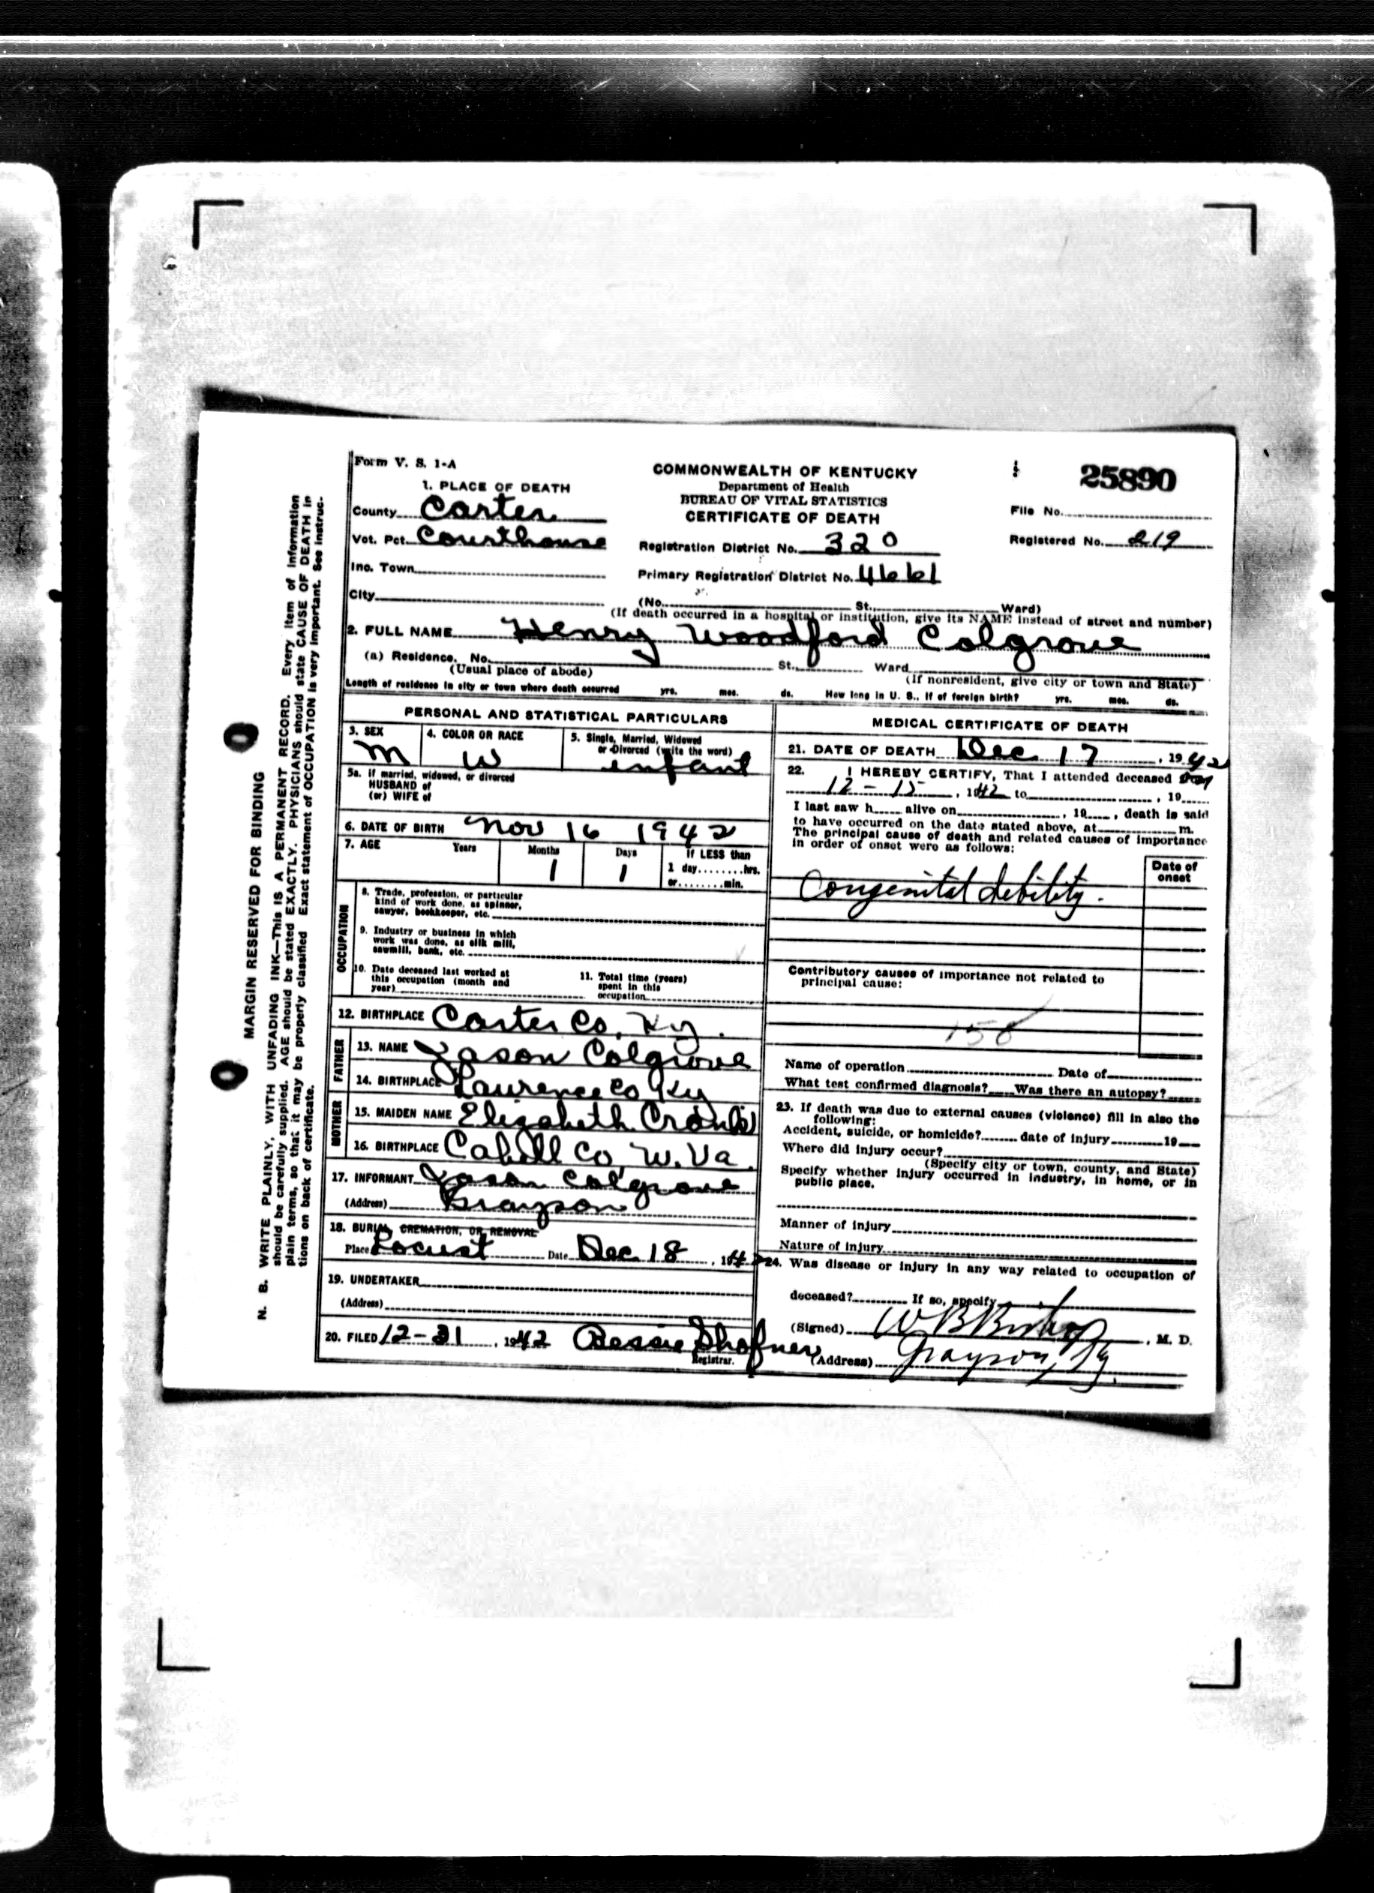 Form V. S. 1-A
COMMONWEALTH OF KENTUCKY
Department of Health
BUREAU OF VITAL STATISTICS
CERTIFICATE OF DEATH
25890
1. PLACE OF DEATH
County Carter
Vot. Pct. Courthouse
Inc. Town
City
Registration District No. 320
Primary Registration District No. 4661
File No.
Registered No. 219
(No. St., Ward)
(If death occurred in a hospital or institution, give its NAME instead of street and number)
2. FULL NAME Henry Woodford Colgrove
(a) Residence. No. St., Ward
(Usual place of abode) (If nonresident, give city or town and State)
Length of residence in city or town where death occurred yrs. mos. ds. How long in U. S., if of foreign birth? yrs. mos. ds.
PERSONAL AND STATISTICAL PARTICULARS
3. SEX M
4. COLOR OR RACE W
5. Single, Married, Widowed
or Divorced (write the word)
infant
5a. If married, widowed, or divorced
HUSBAND of
(or) WIFE of
6. DATE OF BIRTH Nov 16 1942
7. AGE Years Months Days If LESS than
1 1 1 day........hrs.
or........min.
OCCUPATION
8. Trade, profession, or particular
kind of work done, as spinner,
sawyer, bookkeeper, etc.
9. Industry or business in which
work was done, as silk mill,
sawmill, bank, etc.
10. Date deceased last worked at
this occupation (month and
year)
11. Total time (years)
spent in this
occupation
12. BIRTHPLACE Carter Co, Ky.
FATHER
13. NAME Jason Colgrove
14. BIRTHPLACE Laurence Co Ky
MOTHER
15. MAIDEN NAME Elizabeth
16. BIRTHPLACE Cabell Co W. Va.
17. INFORMANT Jason Colgrove
(Address) Grayson
18. BURIAL, CREMATION, OR REMOVAL
Place Locust Date Dec 18, 1942
19. UNDERTAKER
(Address)
20. FILED 12-31, 1942 Bessie Shafner
Registrar.
MEDICAL CERTIFICATE OF DEATH
21. DATE OF DEATH Dec 17, 1942
22. I HEREBY CERTIFY, That I attended deceased from
12-15, 1942 to , 19
I last saw h alive on , 19 , death is said
to have occurred on the date stated above, at m.
The principal cause of death and related causes of importance
in order of onset were as follows:
Date of
onset
Congenital debility.
Contributory causes of importance not related to
principal cause:
158
Name of operation Date of
What test confirmed diagnosis? Was there an autopsy?
23. If death was due to external causes (violence) fill in also the
following:
Accident, suicide, or homicide? date of injury 19
Where did injury occur?
(Specify city or town, county, and State)
Specify whether injury occurred in industry, in home, or in
public place.
Manner of injury
Nature of injury
24. Was disease or injury in any way related to occupation of
deceased? If so, specify
(Signed) W B Bishop, M. D.
(Address) Grayson, Ky.
MARGIN RESERVED FOR BINDING
N. B. WRITE PLAINLY, WITH UNFADING INK—This IS A PERMANENT RECORD. Every item of information
should be carefully supplied. AGE should be stated EXACTLY. PHYSICIANS should state CAUSE OF DEATH in
plain terms, so that it may be properly classified. Exact statement of OCCUPATION is very important. See instruc-
tions on back of certificate.